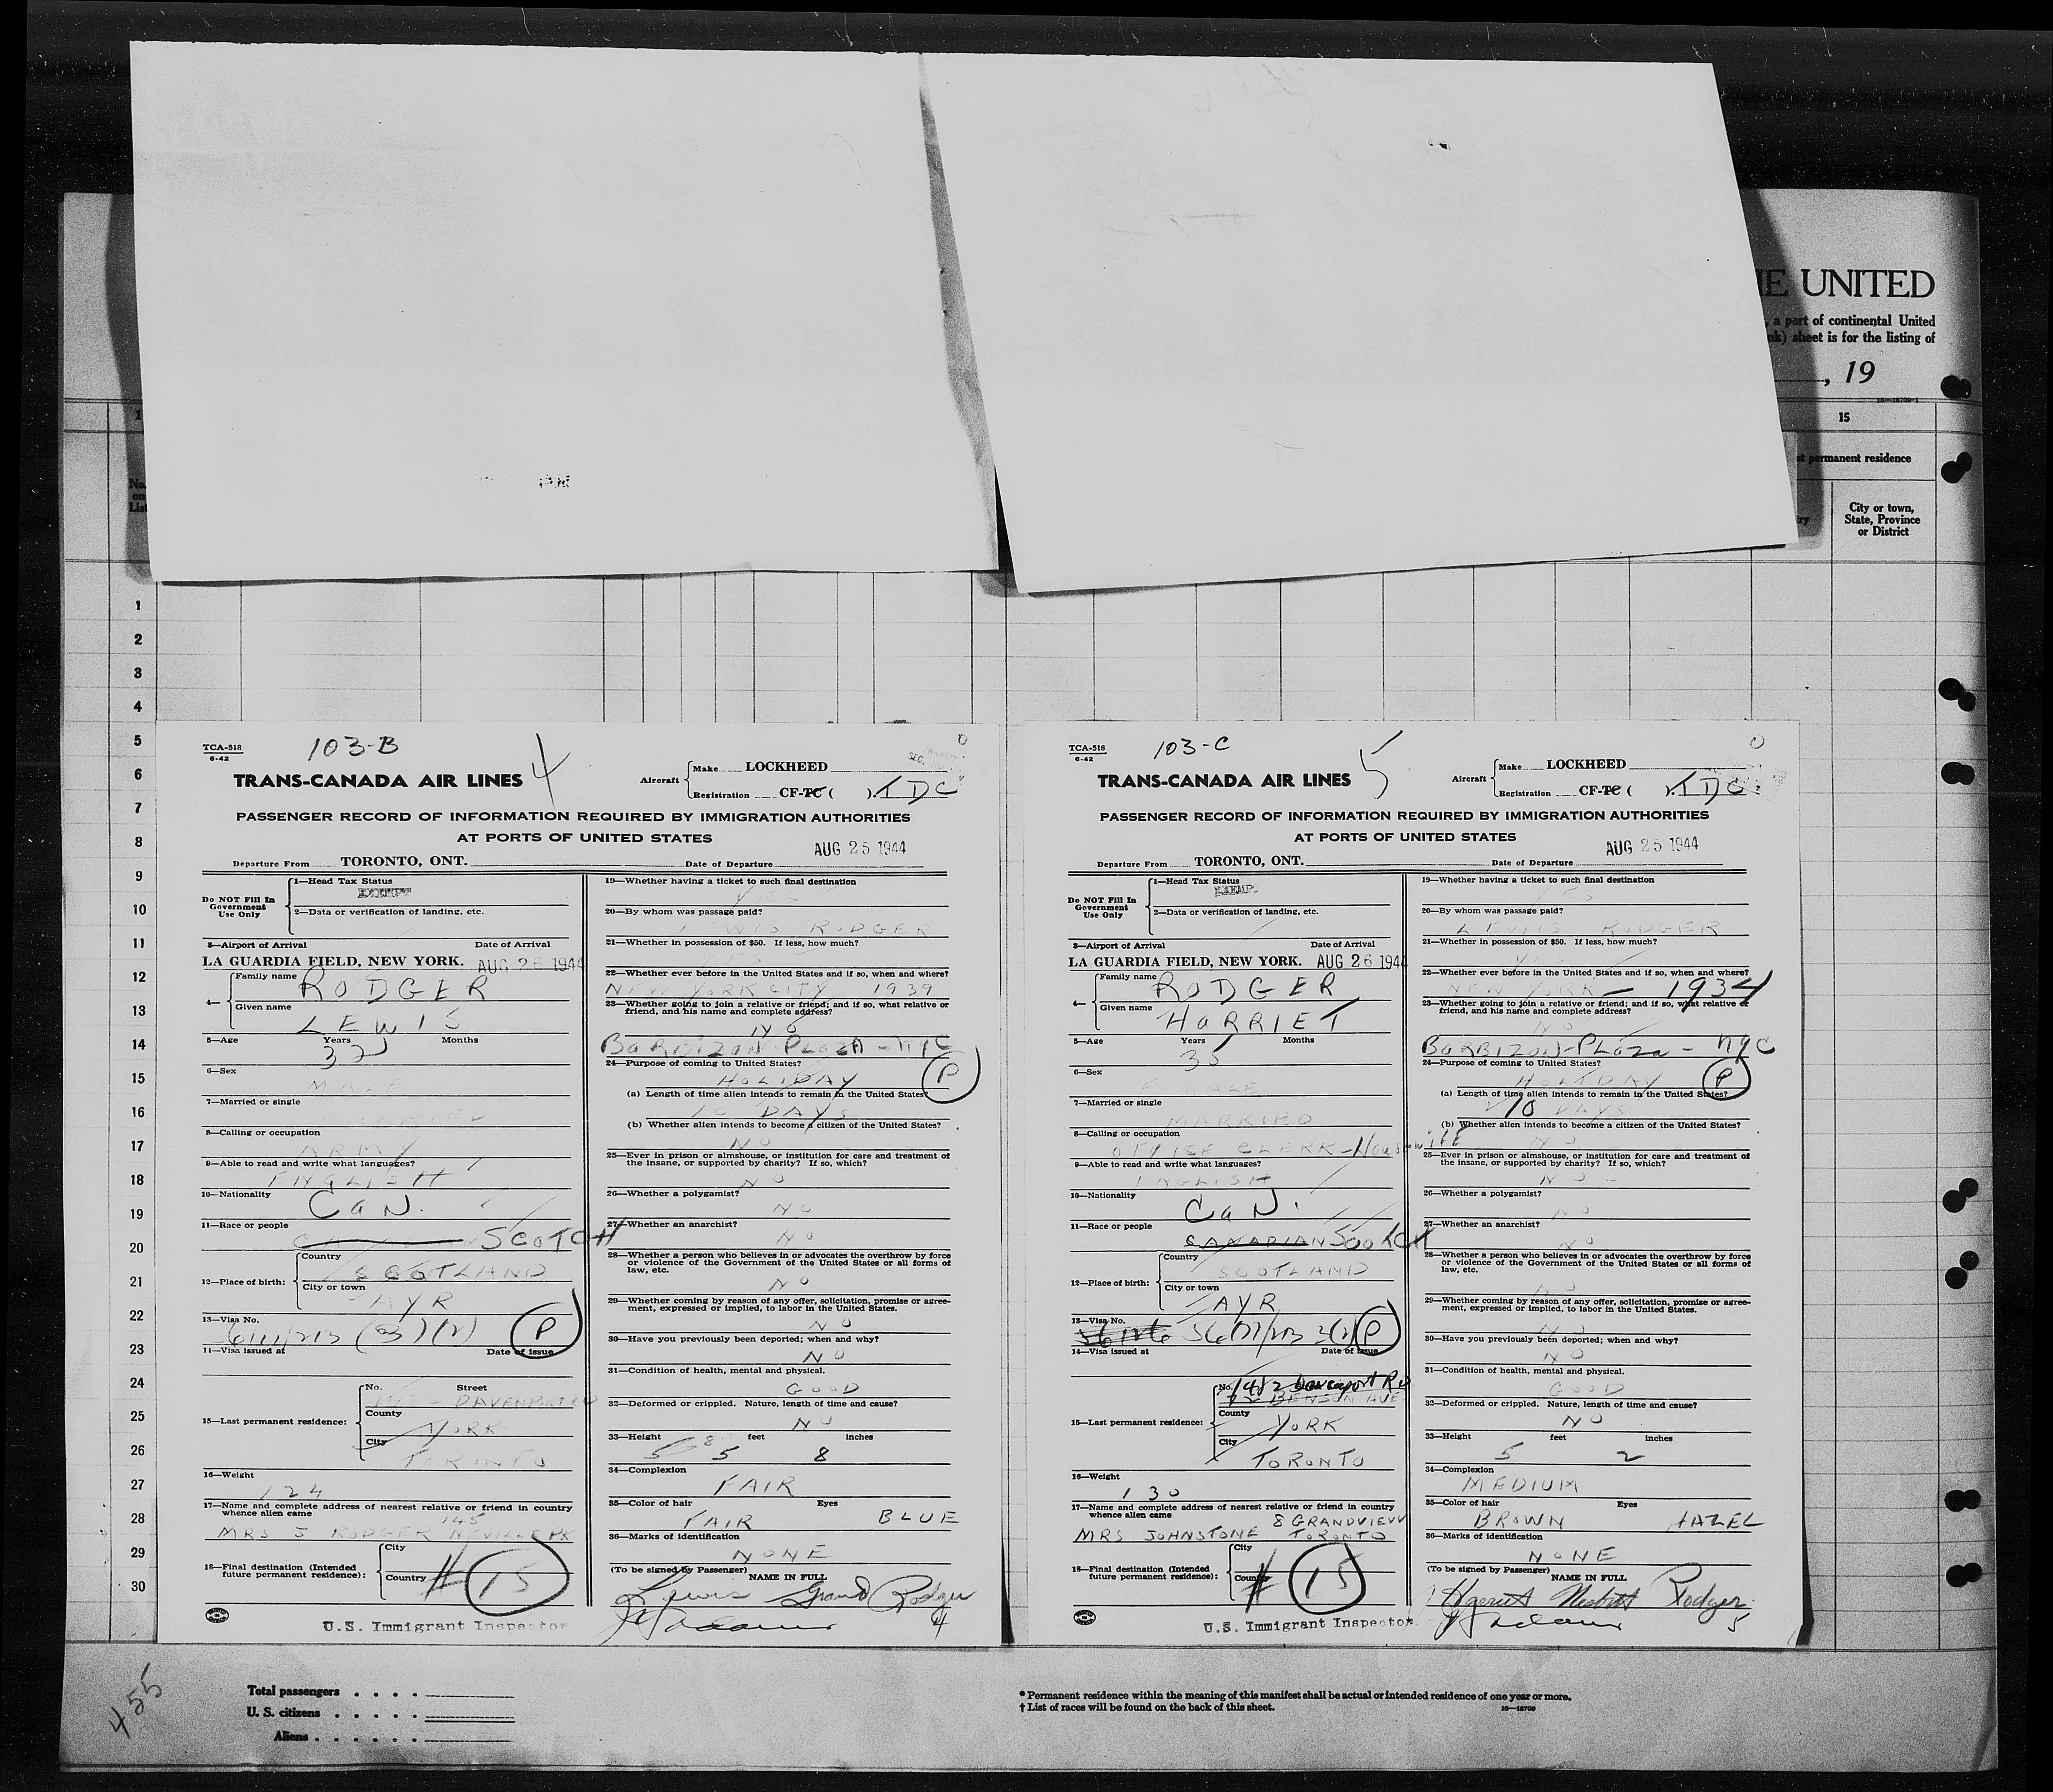 THE UNITED
, a part of continental United
sheet is for the listing of
, 19
15
permanent residence
No. on List
City or town, State, Province or District
1
2
3
4
5
6
7
8
9
10
11
12
13
14
15
16
17
18
19
20
21
22
23
24
25
26
27
28
29
30
TCA-518
6-42
103-B
4
TRANS-CANADA AIR LINES
Aircraft
Make LOCKHEED
Registration CF-TC ( ). TDC
PASSENGER RECORD OF INFORMATION REQUIRED BY IMMIGRATION AUTHORITIES
AT PORTS OF UNITED STATES
AUG 25 1944
Departure From TORONTO, ONT. Date of Departure
Do NOT Fill In Government Use Only
1—Head Tax Status
EXEMPT
2—Data or verification of landing, etc.
3—Airport of Arrival Date of Arrival
LA GUARDIA FIELD, NEW YORK. AUG 26 1944
4—
Family name RODGER
Given name LEWIS
5—Age Years Months
32
6—Sex
MALE
7—Married or single
8—Calling or occupation
ARMY
9—Able to read and write what languages?
ENGLISH
10—Nationality
CaN.
11—Race or people
SCOTCH
12—Place of birth:
Country
SCOTLAND
City or town
AYR
13—Visa No.
(3)(2) P
14—Visa issued at Date of issue
15—Last permanent residence:
No. Street
DAVENPORT
County
YORK
City
TORONTO
16—Weight
124
17—Name and complete address of nearest relative or friend in country whence alien came
145
MRS J RODGER NEVILLE PK
18—Final destination (Intended future permanent residence):
City
Country
# 15
U.S. Immigrant Inspector
19—Whether having a ticket to such final destination
YES
20—By whom was passage paid?
LEWIS RODGER
21—Whether in possession of $50. If less, how much?
YES
22—Whether ever before in the United States and if so, when and where?
NEW YORK CITY 1939
23—Whether going to join a relative or friend; and if so, what relative or friend, and his name and complete address?
NO
BARBIZON-PLAZA-NYC
24—Purpose of coming to United States?
HOLIDAY P
(a) Length of time alien intends to remain in the United States?
10 DAYS
(b) Whether alien intends to become a citizen of the United States?
NO
25—Ever in prison or almshouse, or institution for care and treatment of the insane, or supported by charity? If so, which?
NO
26—Whether a polygamist?
NO
27—Whether an anarchist?
NO
28—Whether a person who believes in or advocates the overthrow by force or violence of the Government of the United States or all forms of law, etc.
NO
29—Whether coming by reason of any offer, solicitation, promise or agreement, expressed or implied, to labor in the United States.
NO
30—Have you previously been deported; when and why?
NO
31—Condition of health, mental and physical.
GOOD
32—Deformed or crippled. Nature, length of time and cause?
NO
33—Height feet inches
5 8
34—Complexion
FAIR
35—Color of hair Eyes
FAIR BLUE
36—Marks of identification
NONE
(To be signed by Passenger) NAME IN FULL
Lewis Grand Rodger
4
TCA-518
6-42
103-C
5
TRANS-CANADA AIR LINES
Aircraft
Make LOCKHEED
Registration CF-TC ( ). TDC
PASSENGER RECORD OF INFORMATION REQUIRED BY IMMIGRATION AUTHORITIES
AT PORTS OF UNITED STATES
AUG 25 1944
Departure From TORONTO, ONT. Date of Departure
Do NOT Fill In Government Use Only
1—Head Tax Status
EXEMP
2—Data or verification of landing, etc.
3—Airport of Arrival Date of Arrival
LA GUARDIA FIELD, NEW YORK. AUG 26 1944
4—
Family name RODGER
Given name HARRIET
5—Age Years Months
35
6—Sex
7—Married or single
MARRIED
8—Calling or occupation
OFFICE CLERK-Housewife
9—Able to read and write what languages?
ENGLISH
10—Nationality
CaN.
11—Race or people
CANADIAN SCOTCH
12—Place of birth:
Country
SCOTLAND
City or town
AYR
13—Visa No.
3(2) P
14—Visa issued at Date of issue
15—Last permanent residence:
No. 1412 Davenport Rd
BENSON AVE
County
YORK
City
TORONTO
16—Weight
130
17—Name and complete address of nearest relative or friend in country whence alien came
8 GRANDVIEW
MRS JOHNSTONE TORONTO
18—Final destination (Intended future permanent residence):
City
Country
# 15
U.S. Immigrant Inspector
19—Whether having a ticket to such final destination
YES
20—By whom was passage paid?
LEWIS RODGER
21—Whether in possession of $50. If less, how much?
YES
22—Whether ever before in the United States and if so, when and where?
NEW YORK - 1934
23—Whether going to join a relative or friend; and if so, what relative or friend, and his name and complete address?
NO
BARBIZON-PLAZA - NYC
24—Purpose of coming to United States?
HOLIDAY P
(a) Length of time alien intends to remain in the United States?
10 DAYS
(b) Whether alien intends to become a citizen of the United States?
NO
25—Ever in prison or almshouse, or institution for care and treatment of the insane, or supported by charity? If so, which?
NO
26—Whether a polygamist?
NO
27—Whether an anarchist?
NO
28—Whether a person who believes in or advocates the overthrow by force or violence of the Government of the United States or all forms of law, etc.
NO
29—Whether coming by reason of any offer, solicitation, promise or agreement, expressed or implied, to labor in the United States.
NO
30—Have you previously been deported; when and why?
NO
31—Condition of health, mental and physical.
GOOD
32—Deformed or crippled. Nature, length of time and cause?
NO
33—Height feet inches
5 2
34—Complexion
MEDIUM
35—Color of hair Eyes
BROWN HAZEL
36—Marks of identification
NONE
(To be signed by Passenger) NAME IN FULL
Harriet Nesbitt Rodger
5
455
Total passengers . . . .
U. S. citizens . . . . .
Aliens . . . . . .
* Permanent residence within the meaning of this manifest shall be actual or intended residence of one year or more.
† List of races will be found on the back of this sheet.
16—18709